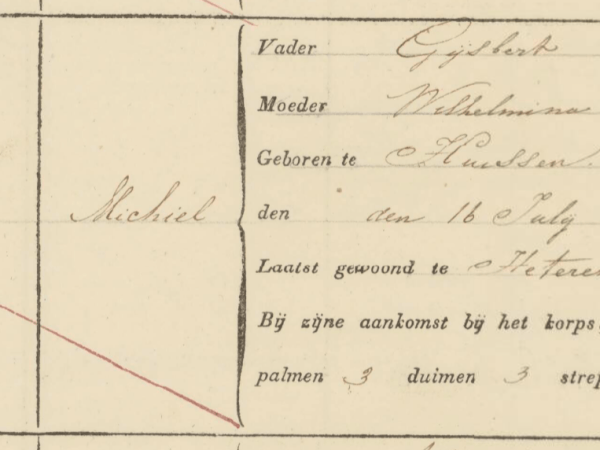 Vader Gijsbert
Moeder Wilhelmina
Geboren te Huissen.
Michiel
den den 16 July
Laatst gewoond te Heteren
Bij zijne aankomst bij het korps,
palmen 3 duimen 3 strep